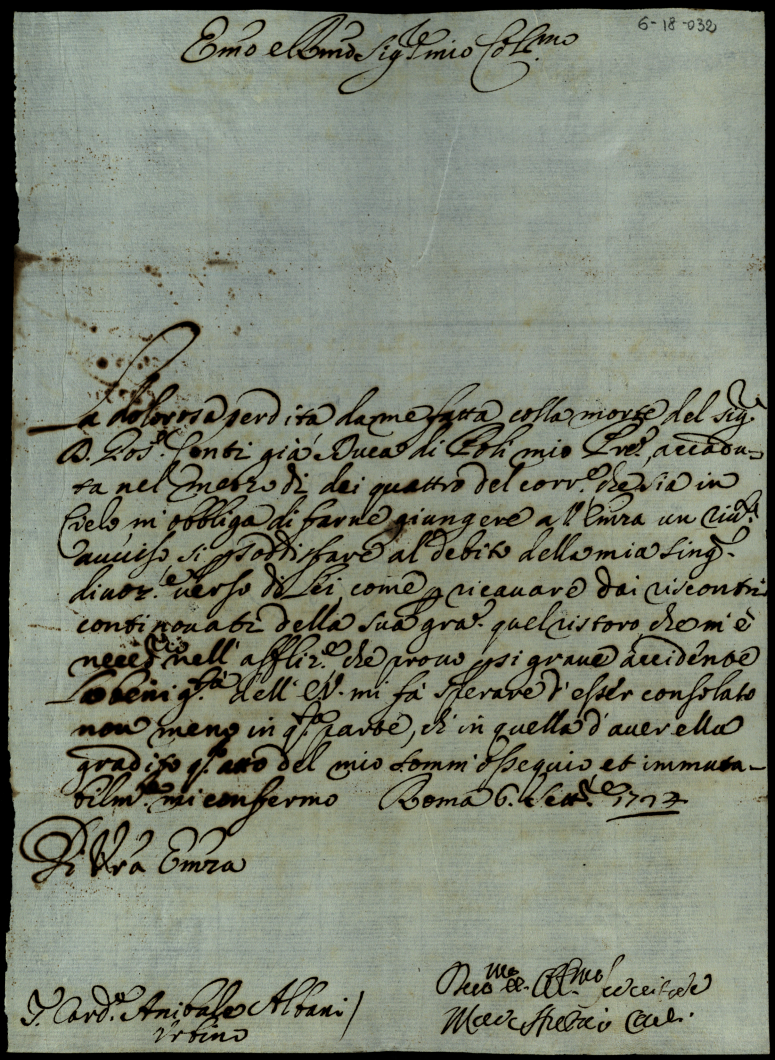 6-18-032
Emo e Rmo Sigre mio Colmo
La dolorosa perdita da me fatta colla morte del Sigr
D. Conti già Duca di Poli mio Pre, accadu-
ta nel mezzo dì dei quattro del corr.e che sia in
Cielo m'obbliga di farne giungere all'Emza un
avviso si p soddisfare al debito della mia sing.
divoz.e verso di Lei, come p ricavare dai riscontri
continovati della sua gra. quel ristoro, che m'è
necess.o nell'affliz.e che provo p sì grave accidente
La benig.tà dell'EV. mi fà sperare d'esser consolato
non meno in q.sta parte, che in quella d'aver ella
gradito q.sto atto del mio somm'ossequio et immuta-
bilm.te mi confermo Roma 6. Sett.e 1724
Di Vra Emza
S. Card.e Anibale Albani
Urbino